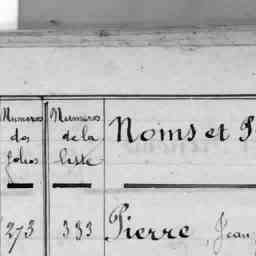 Numéros
des
folios
Numéros
de la
liste
Noms et P
273
333
Pierre, Jean